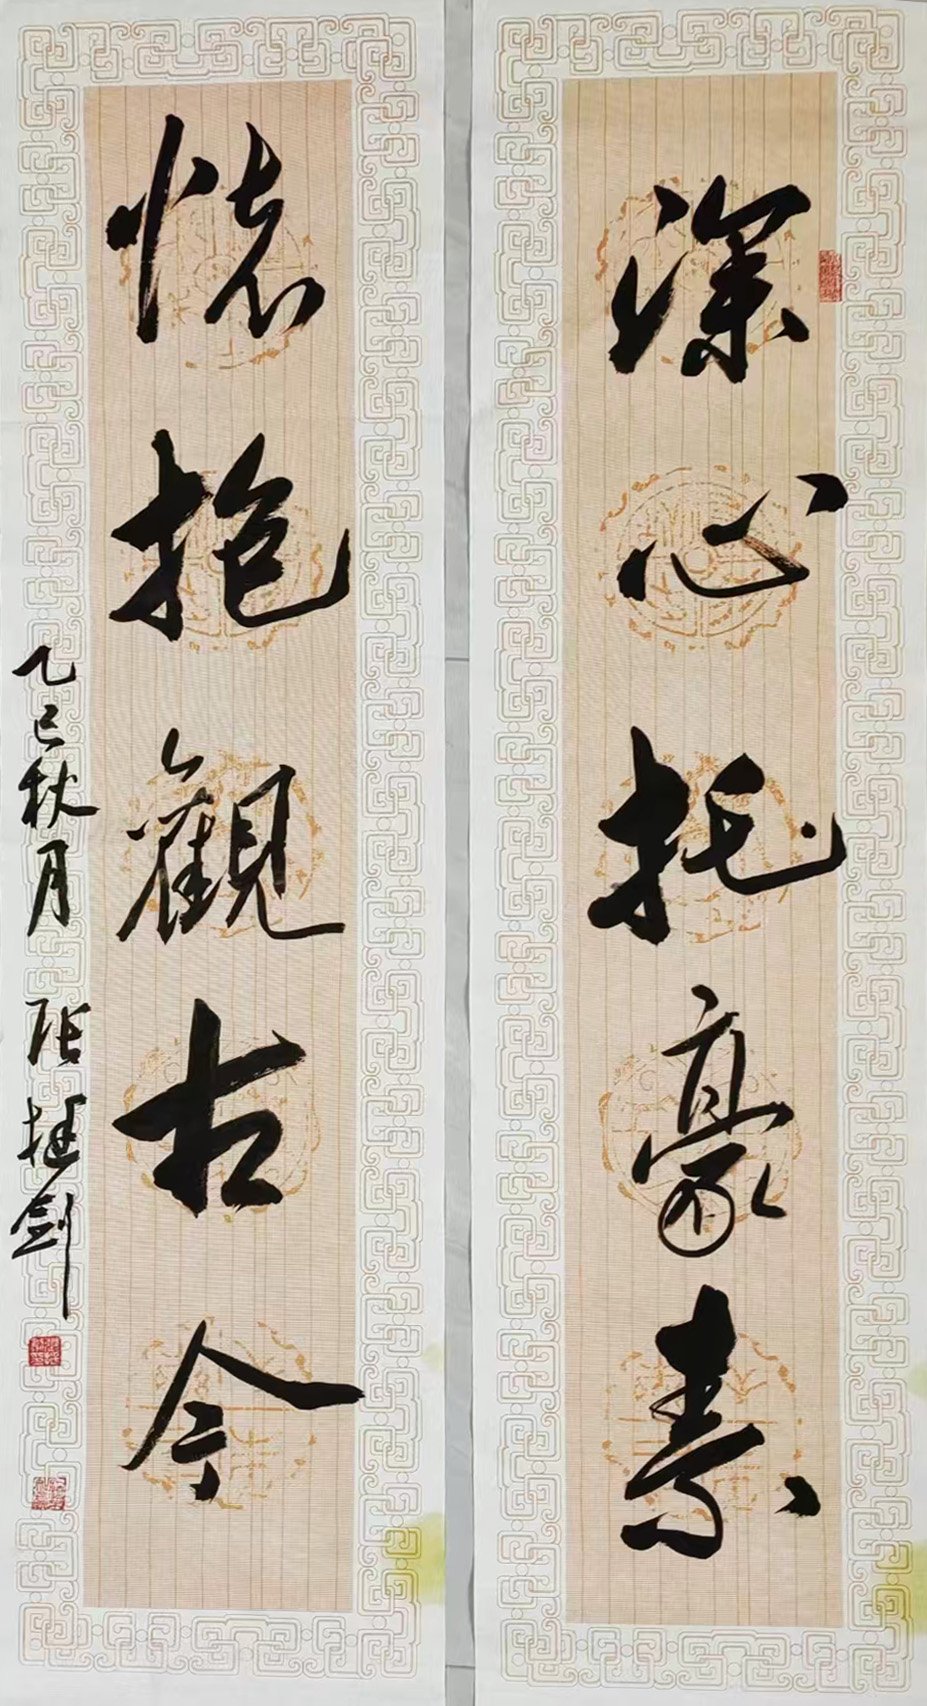 深心托豪素
懷抱觀古今
乙巳秋月 张挺剑